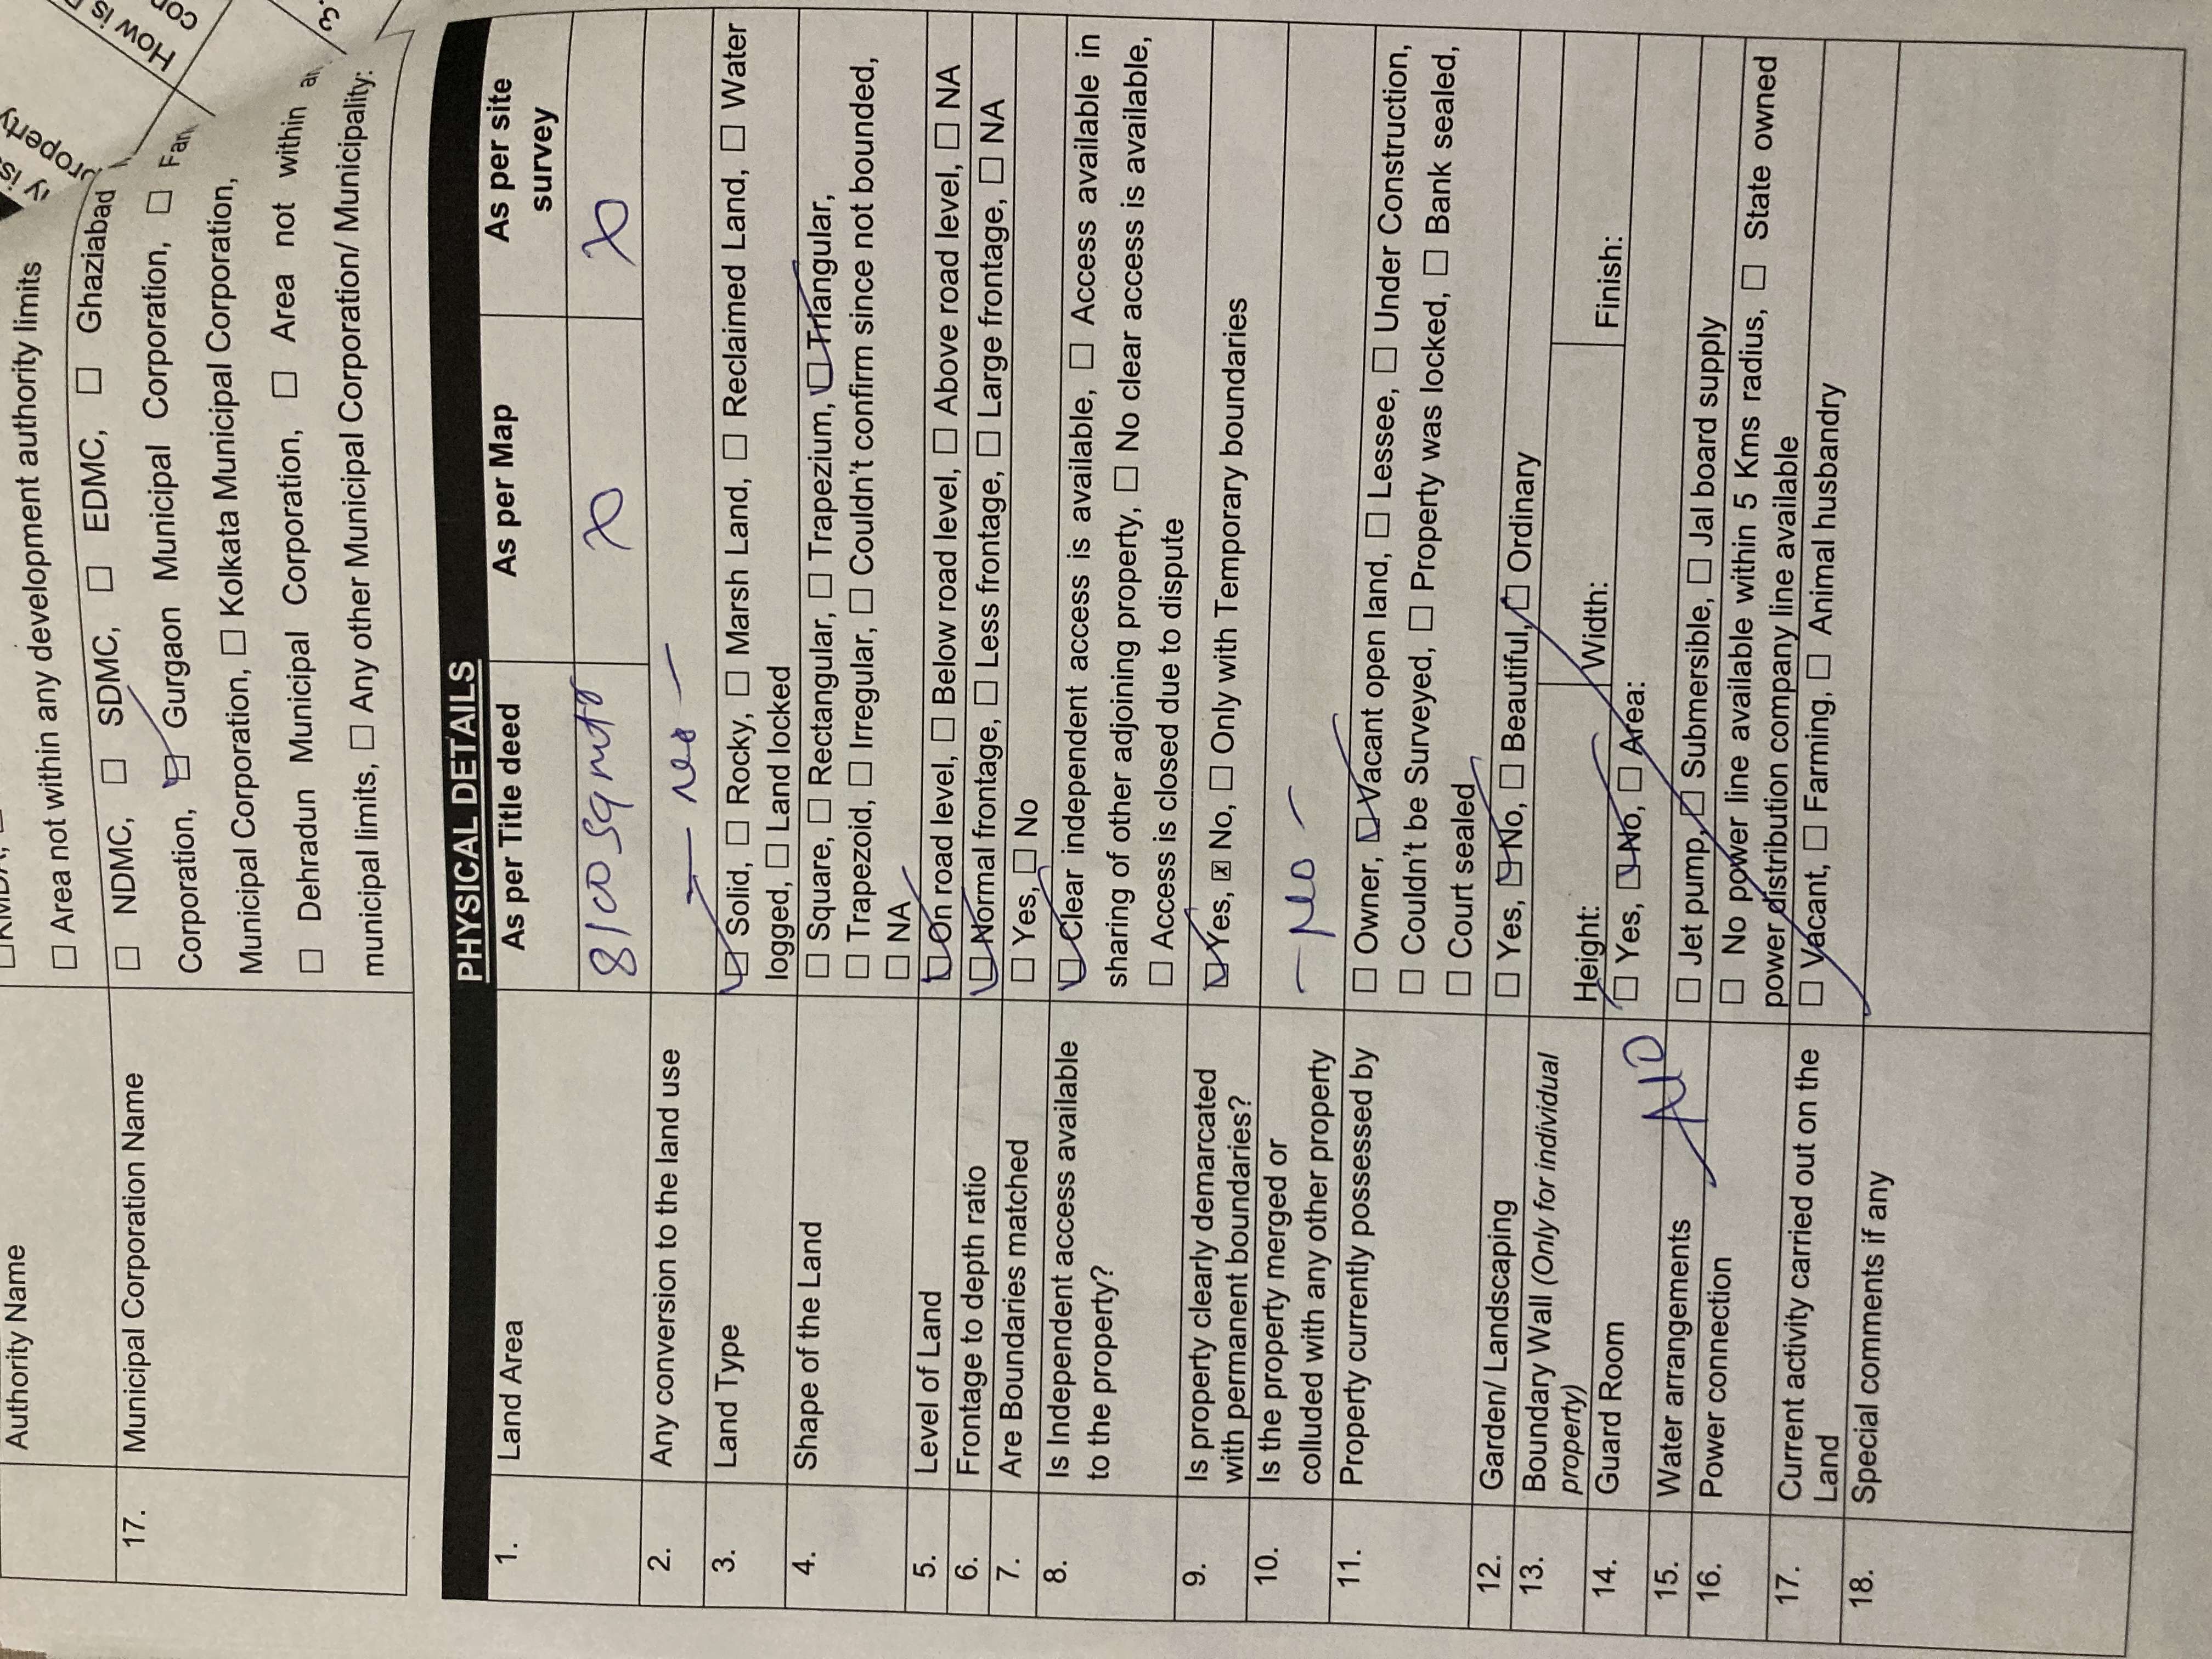 How is
ly is
property
Authority Name
☐ Area not within any development authority limits
17. Municipal Corporation Name
☐ NDMC, ☐ SDMC, ☐ EDMC, ☐ Ghaziabad
Corporation, ☑ Gurgaon Municipal Corporation, ☐
Municipal Corporation, ☐ Kolkata Municipal Corporation,
☐ Dehradun Municipal Corporation, ☐ Area not within
municipal limits, ☐ Any other Municipal Corporation/ Municipality:
PHYSICAL DETAILS
1. Land Area
As per Title deed As per Map As per site survey
8100 sq mtr X X
2. Any conversion to the land use
— No —
3. Land Type
☑ Solid, ☐ Rocky, ☐ Marsh Land, ☐ Reclaimed Land, ☐ Water
logged, ☐ Land locked
4. Shape of the Land
☐ Square, ☐ Rectangular, ☐ Trapezium, ☑ Triangular,
☐ Trapezoid, ☐ Irregular, ☐ Couldn't confirm since not bounded,
☐ NA
5. Level of Land
☑ On road level, ☐ Below road level, ☐ Above road level, ☐ NA
6. Frontage to depth ratio
☑ Normal frontage, ☐ Less frontage, ☐ Large frontage, ☐ NA
7. Are Boundaries matched
☐ Yes, ☐ No
8. Is Independent access available
to the property?
☑ Clear independent access is available, ☐ Access available in
sharing of other adjoining property, ☐ No clear access is available,
☐ Access is closed due to dispute
9. Is property clearly demarcated
with permanent boundaries?
☑ Yes, ☒ No, ☐ Only with Temporary boundaries
10. Is the property merged or
colluded with any other property
— No —
11. Property currently possessed by
☐ Owner, ☑ Vacant open land, ☐ Lessee, ☐ Under Construction,
☐ Couldn't be Surveyed, ☐ Property was locked, ☐ Bank sealed,
☐ Court sealed
12. Garden/ Landscaping
☐ Yes, ☑ No, ☐ Beautiful, ☐ Ordinary
13. Boundary Wall (Only for individual
property)
Height: Width: Finish:
14. Guard Room
☐ Yes, ☑ No, ☐ Area:
15. Water arrangements
☐ Jet pump, ☐ Submersible, ☐ Jal board supply
16. Power connection
☐ No power line available within 5 Kms radius, ☐ State owned
power distribution company line available
17. Current activity carried out on the
Land
☐ Vacant, ☐ Farming, ☐ Animal husbandry
18. Special comments if any